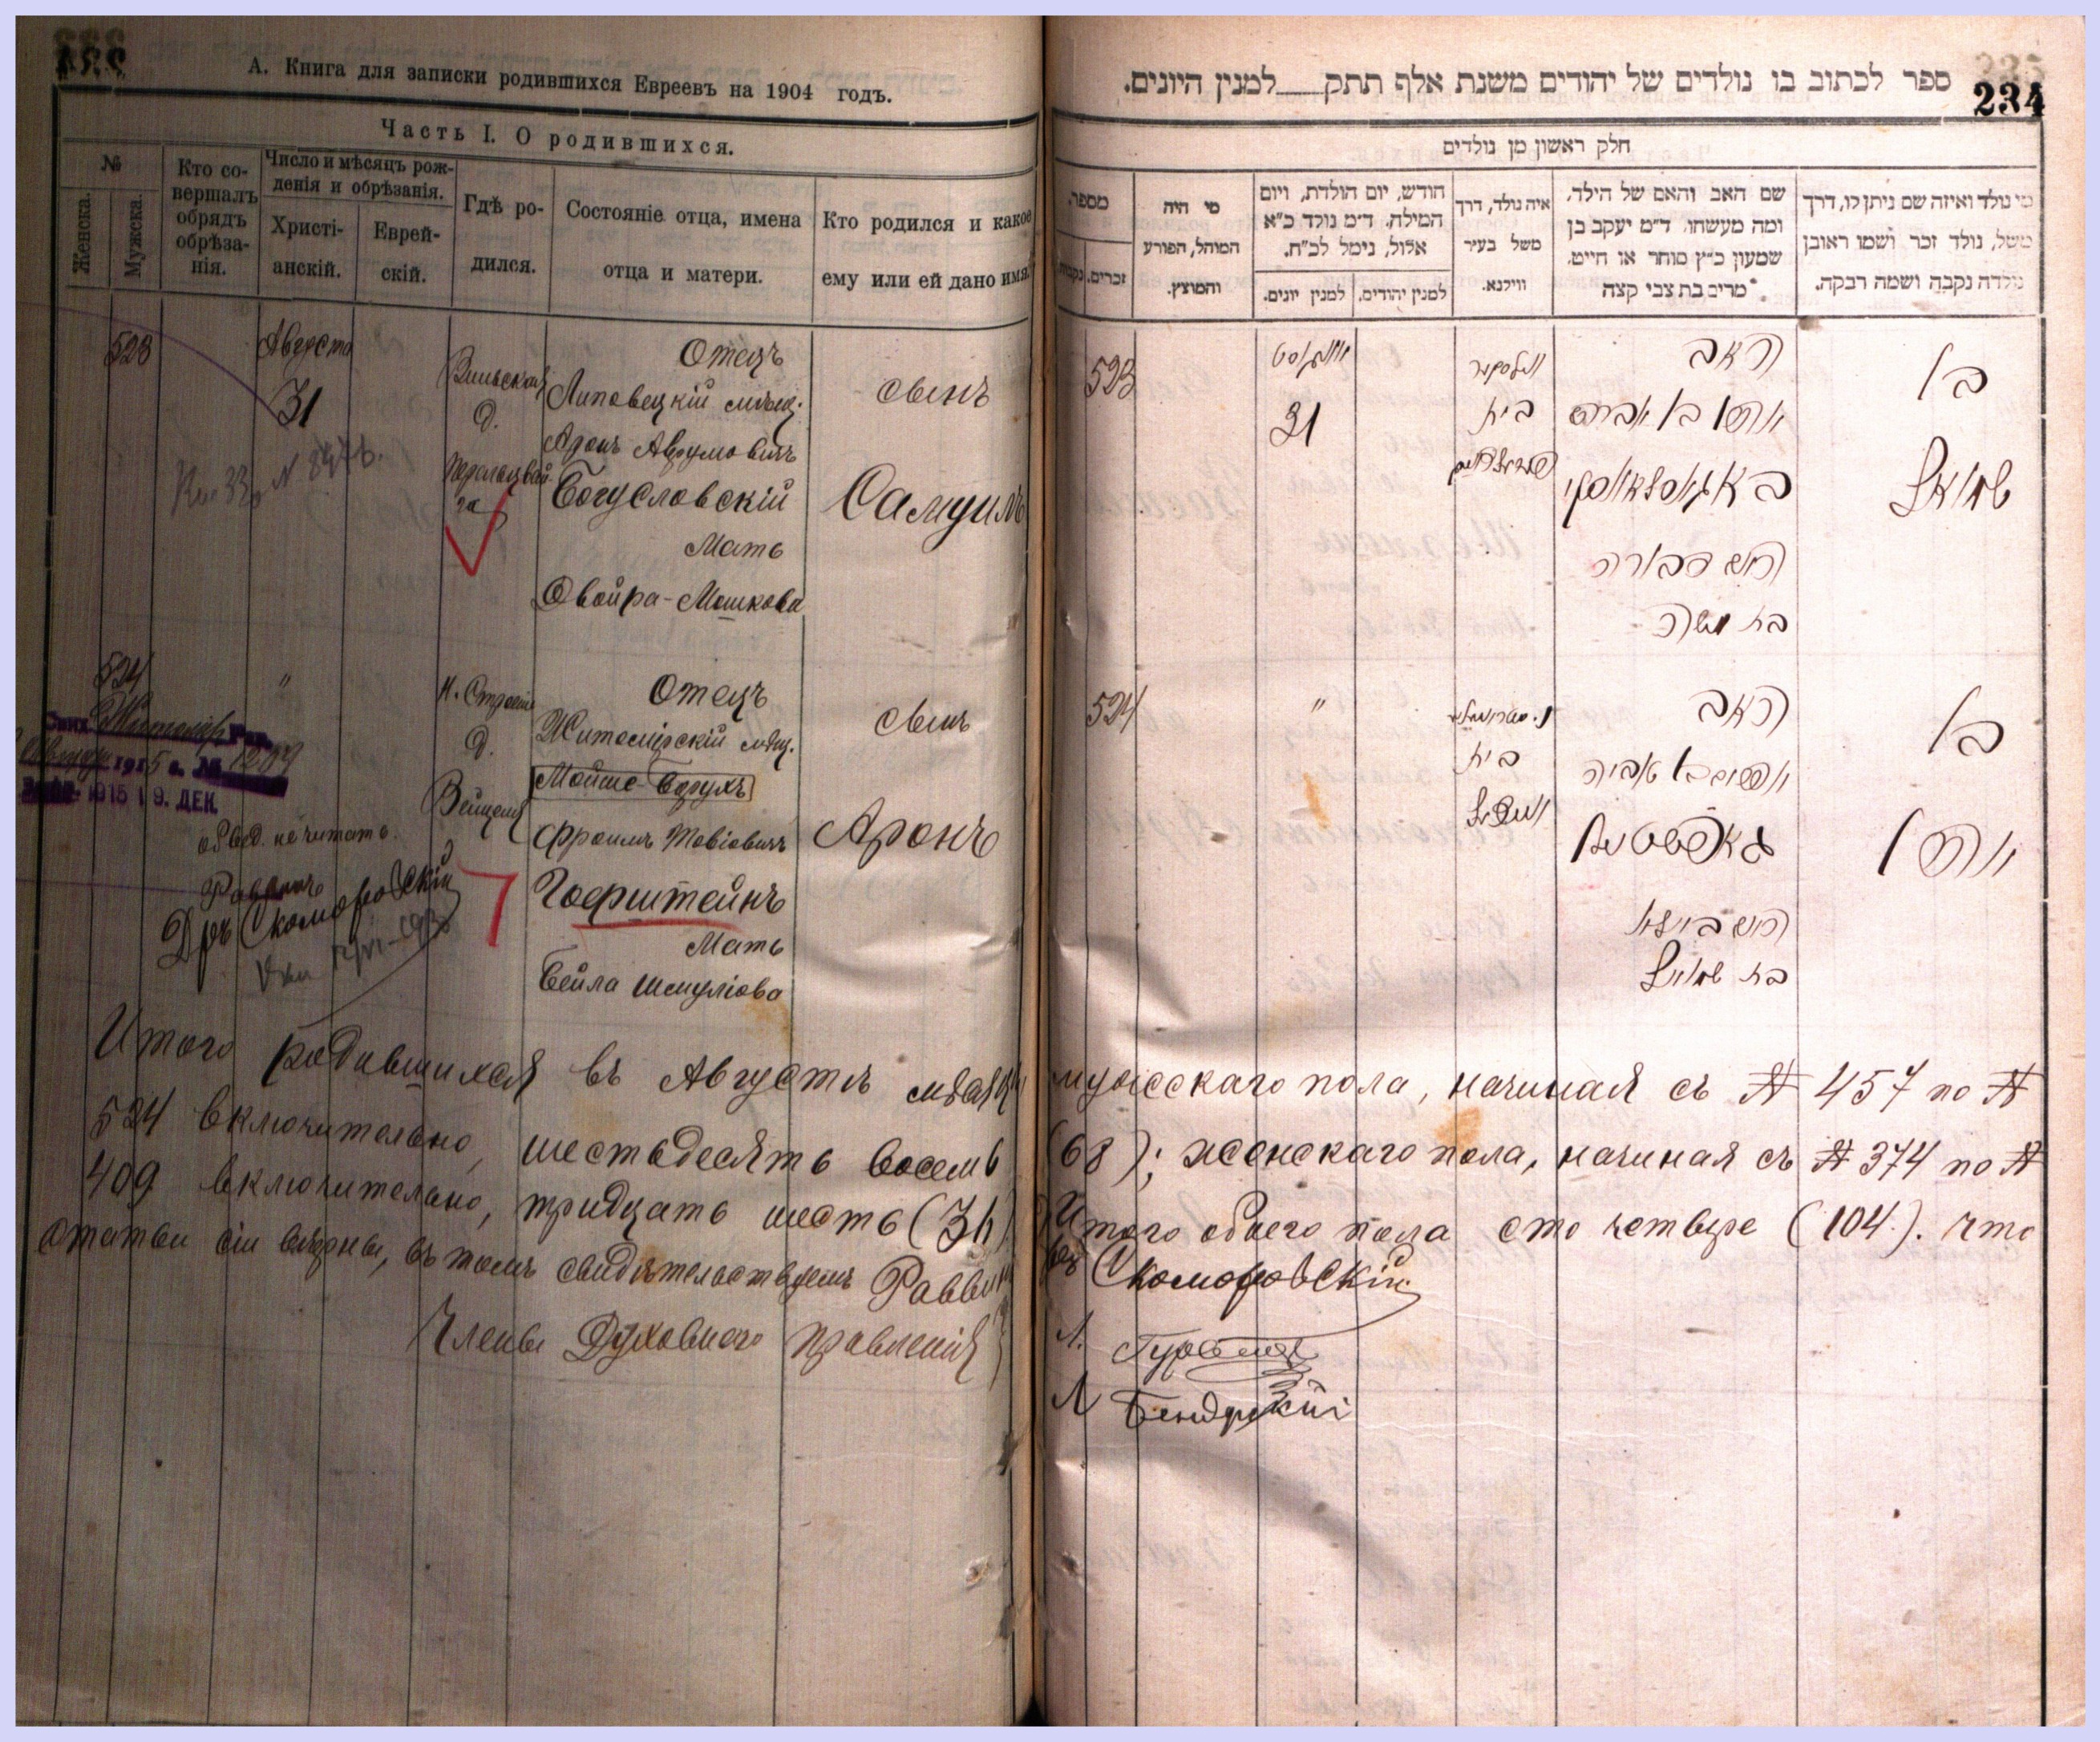 А. Книга для записки родившихся Евреевъ на 1904 годъ.
Часть I. О родившихся.
№
Женска.
Мужска.
Кто со-
вершалъ
обрядъ
обрѣза-
нія.
Число и мѣсяцъ рож-
денія и обрѣзанія.
Христі-
анскій.
Еврей-
скій.
Гдѣ ро-
дился.
Состояніе отца, имена
отца и матери.
Кто родился и какое
ему или ей дано имя.
523
Августа
31
Вильская
д.
Отецъ
Липовецкій мѣщ.
Аронъ Аврумовичъ
Богуславскій
Мать
Двойра-Мошкова
сынъ
Самуилъ
524
"
д.
Отецъ
Житомірскій мѣщ.
Мойше-Борухъ
Фроимъ Товіовичъ
Гоерштейнъ
Мать
Бейла Шмуліова
сынъ
Аронъ
1915 19. ДЕК.
обвед. не читать.
Раввинъ
Дръ Скоморовскій
Итого родившихся въ Августѣ мѣсяцѣ
524 включительно, шестьдесятъ восемь
409 включительно, тридцать шесть (36)
статьи сіи вѣрны, въ томъ свидѣтельствуемъ Раввинъ
Члены Духовнаго Правленія
ספר לכתוב בו נולדים של יהודים משנת אלף תתק למנין היונים.
234
חלק ראשון מן נולדים
מספר.
זכרים.
נקבות.
מי היה
המוהל, הפורע
והמוצץ.
חודש, יום הולדת, ויום
המילה. ד״מ נולד כ״א
אלול, נימל לכ״ח.
למנין יונים.
למנין יהודים.
איה נולד, דרך
משל בעיר
ווילנא.
שם האב והאם של הילד,
ומה מעשהו, ד״מ יעקב בן
שמעון כ״ץ סוחר או חייט,
מרים בת צבי קצה
מי נולד ואיזה שם ניתן לו, דרך
משל, נולד זכר ושמו ראובן
נולדה נקבה ושמה רבקה.
523
אווגוסט
31
בית
האב
אהרן בן אברהם
באגוסלאווסקי
האם דבורה
בת משה
בן
שמואל
524
"
בית
האב
אפרים בן טביה
האם ביילא
בת שמואל
בן
אהרן
мужескаго пола, начиная съ № 457 по №
(68); женскаго пола, начиная съ № 374 по №
Итого обоего пола сто четыре (104). Что
Скоморовскій
Л.
Л Бендерскій